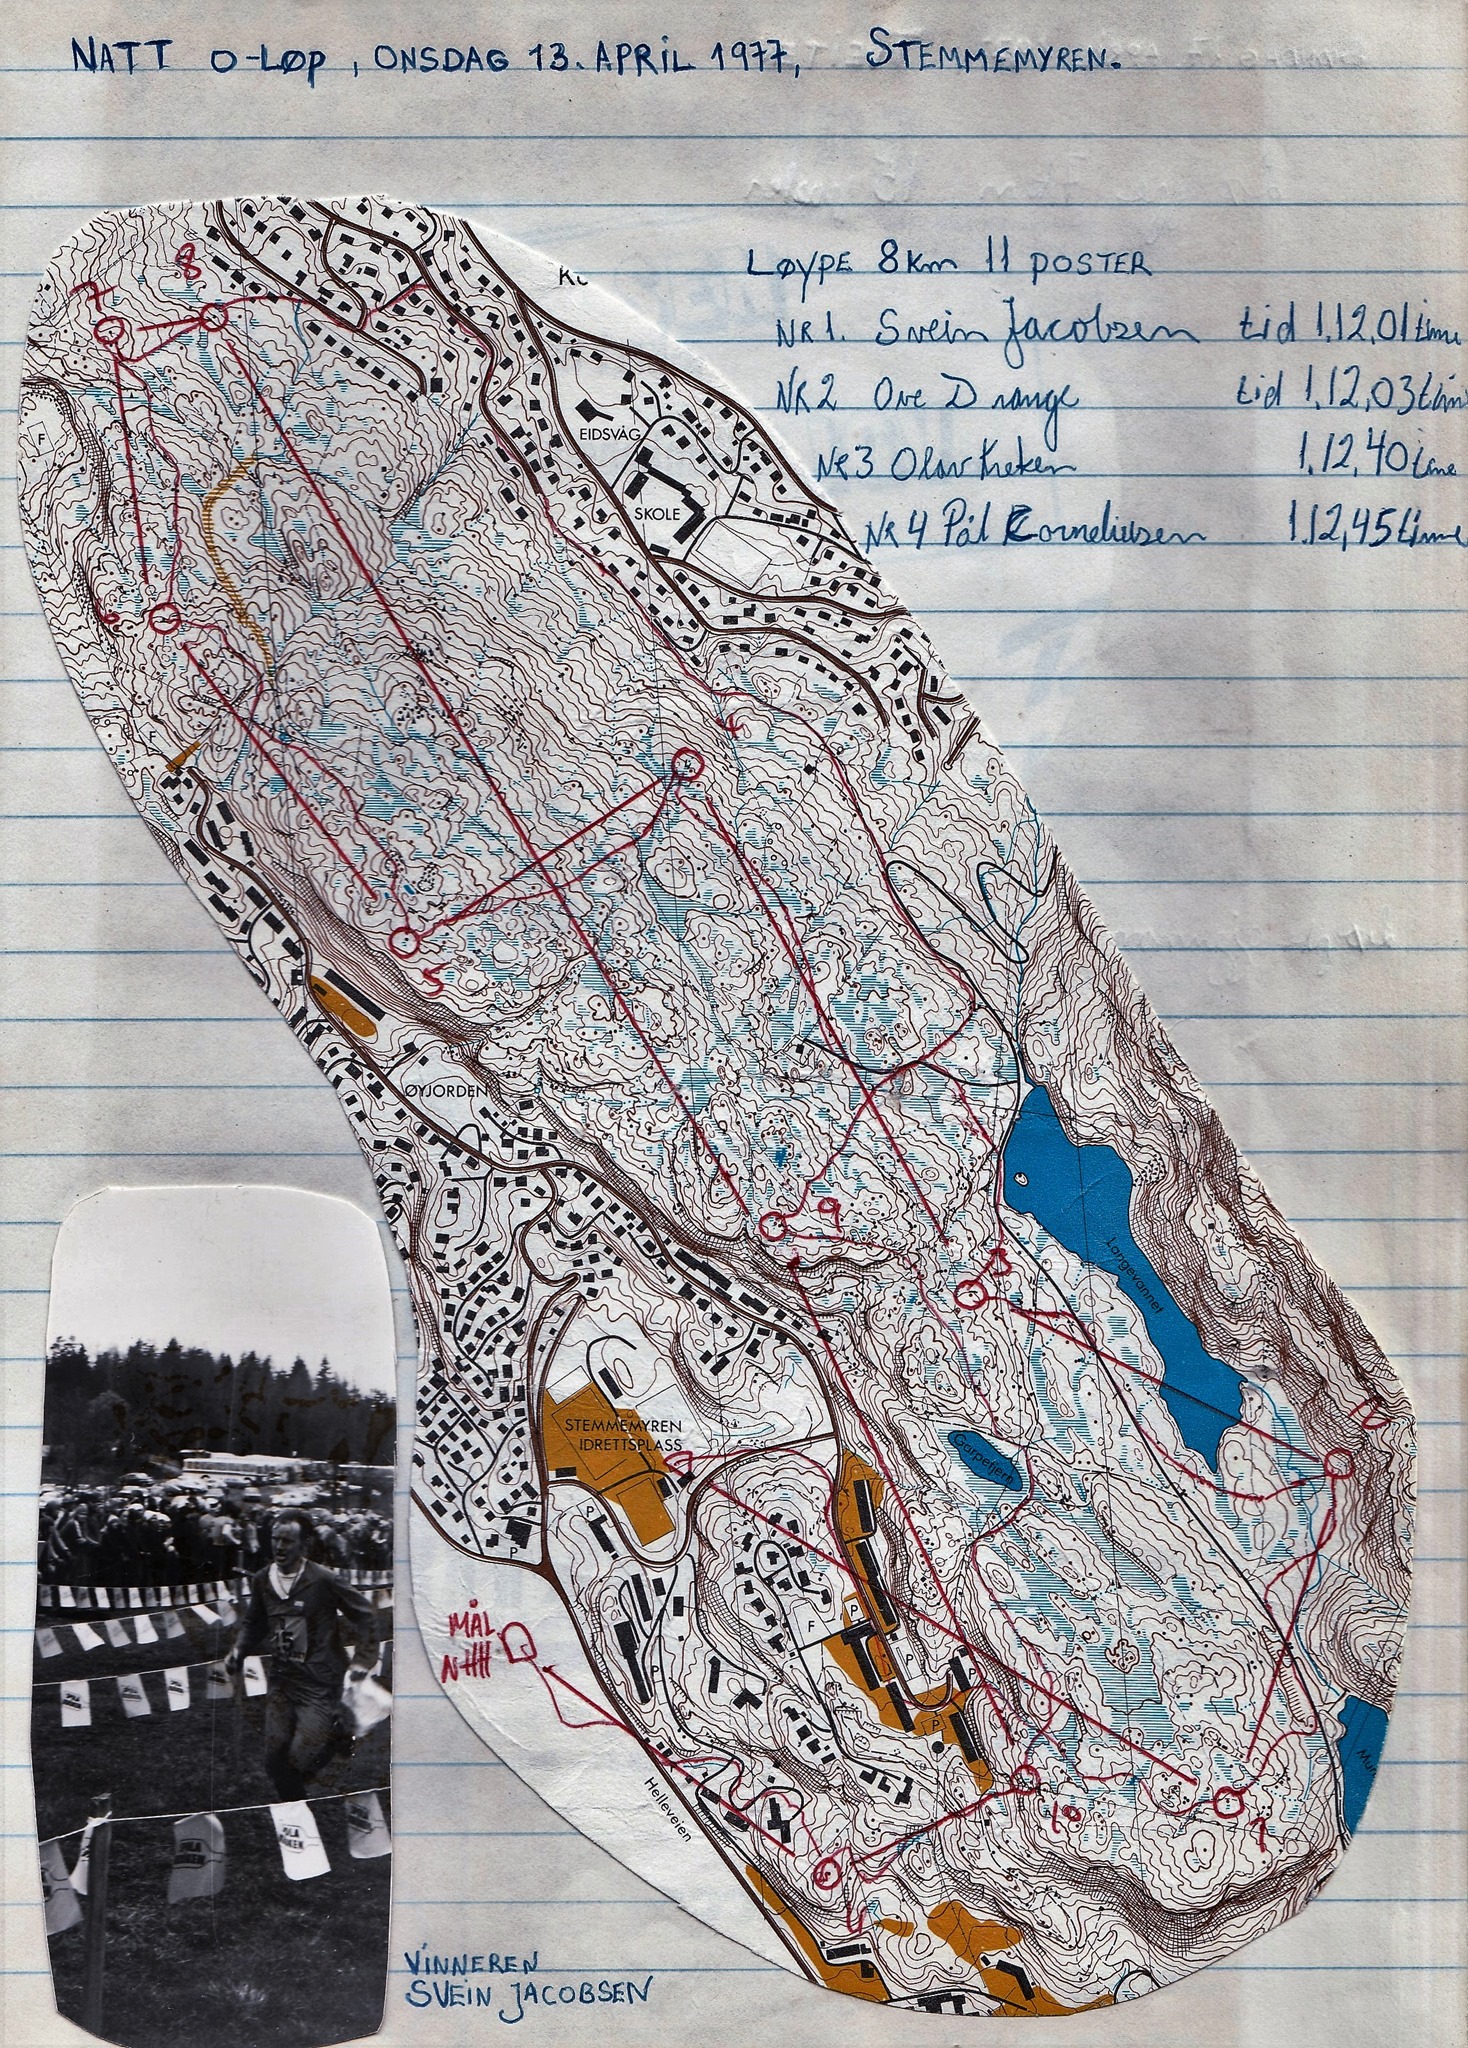 NATT O-LØP, ONSDAG 13. APRIL 1977, STEMMEMYREN.
LØYPE 8 km 11 POSTER
NR 1. Svein Jacobsen tid 1.12,01 time
NR 2 Ove Drange tid 1.12,03
NR 3 Olav 1.12,40 time
NR 4 Pål Corneliussen 1.12,45 time
8
7
F
EIDSVÅG
SKOLE
6
4
F
5
ØYJORDEN
9
3
Langevannet
STEMMEMYREN
IDRETTSPLASS
Garpetjern
P
P
P
F
P
P
P
P
MÅL
10
1
Helleveien
VINNEREN
SVEIN JACOBSEN